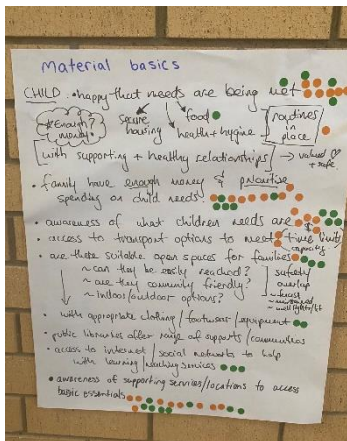 Material basics
CHILD • happy that needs are being met
*Enough? money. secure housing food health + hygiene routines in place
with supporting + healthy relationships → valued + safe
• family have enough money & prioritise
spending on child needs.
• awareness of what children needs are
• access to transport options to meet time limits
capacity
• are there suitable open spaces for families
~ can they be easily reached? safety
~ are they community friendly? overlap
~ Indoor/outdoor options?
~ maintained
• with appropriate clothing/footwear/equipment
• public libraries offer range of supports/communities
• access to internet/social networks to help
with learning/ services
• awareness of supporting services/locations to access
basic essentials